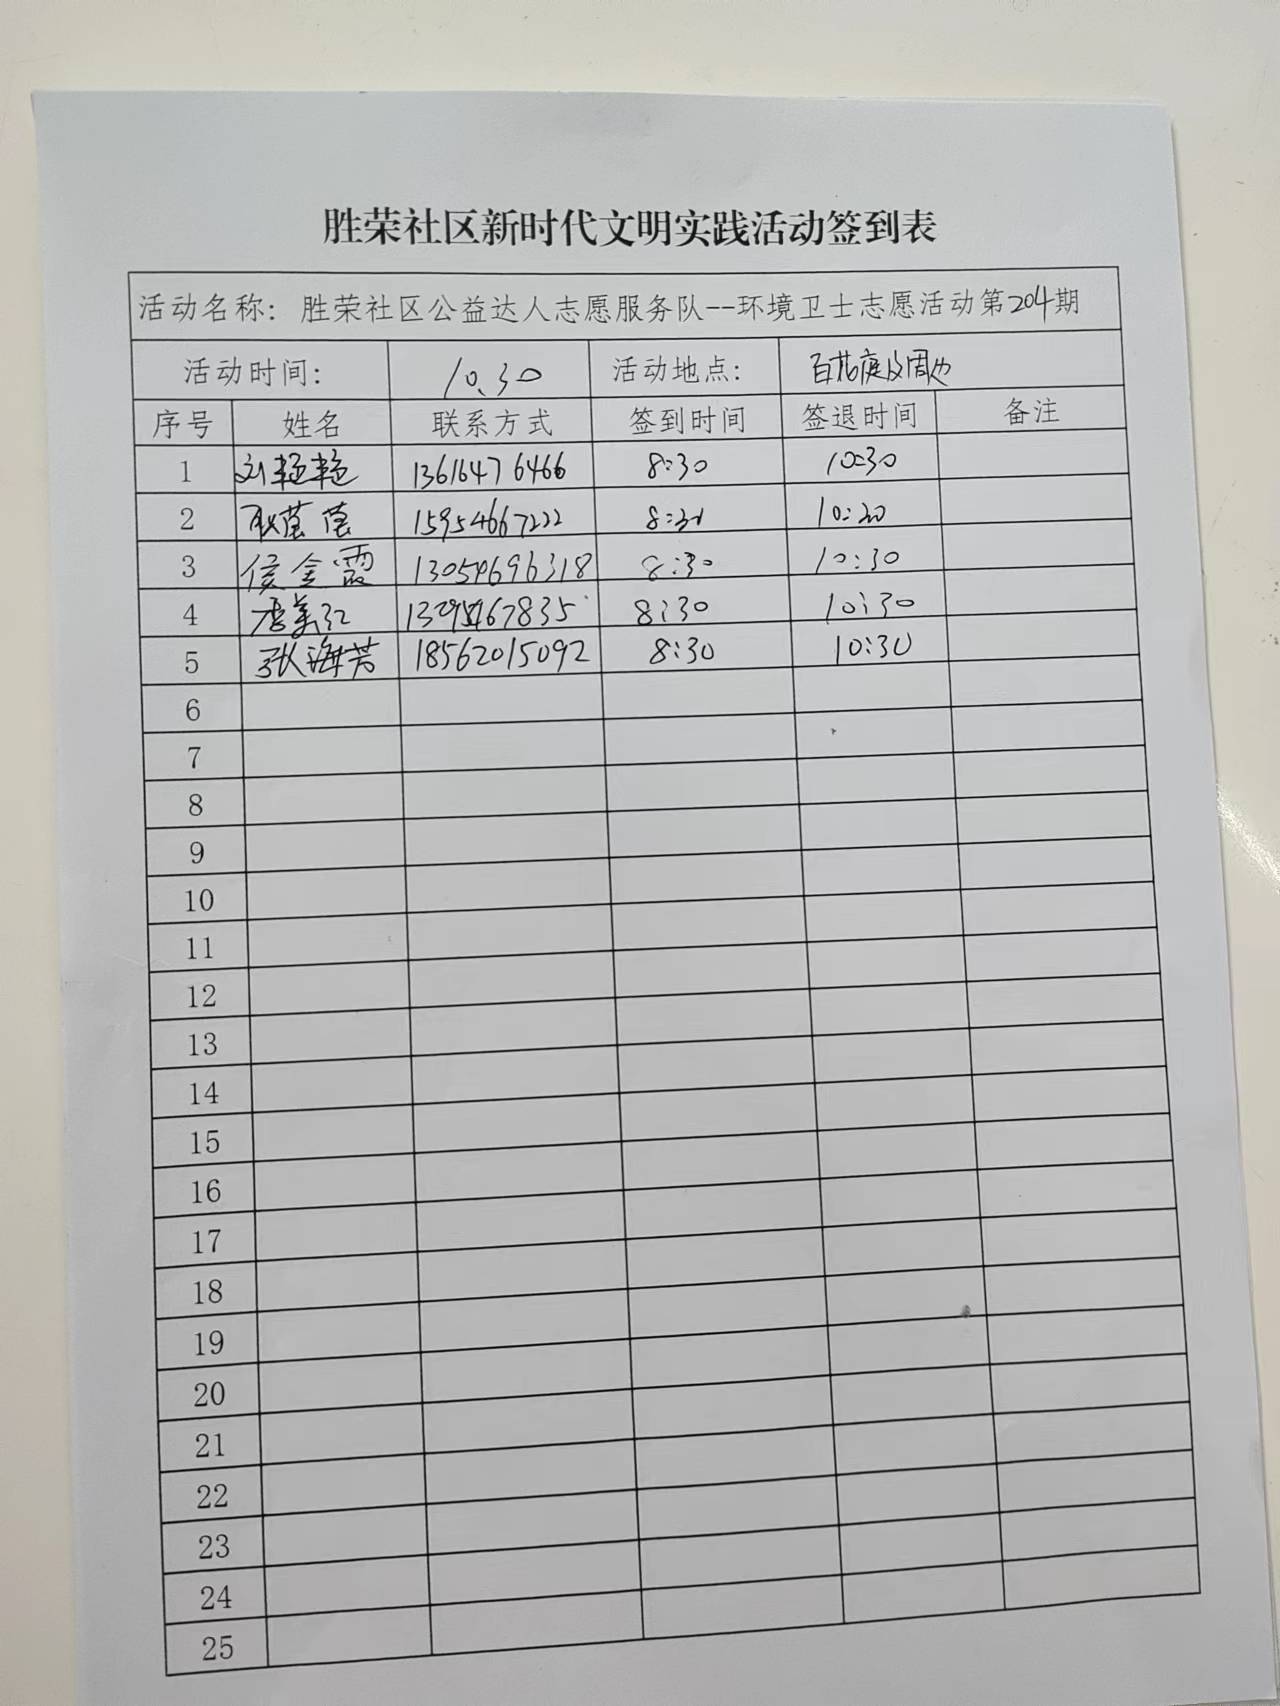 胜荣社区新时代文明实践活动签到表
活动名称：胜荣社区公益达人志愿服务队--环境卫士志愿活动第204期
活动时间： 10.30 活动地点： 百花庭及周边
序号 姓名 联系方式 签到时间 签退时间 备注
1 刘艳艳 13616476466 8:30 10:30
2 耿莹莹 15954667222 8:30 10:20
3 侯金霞 13054696318 8:30 10:30
4 唐美红 8:30 10:30
5 张海芳 18562015092 8:30 10:30
6
7
8
9
10
11
12
13
14
15
16
17
18
19
20
21
22
23
24
25